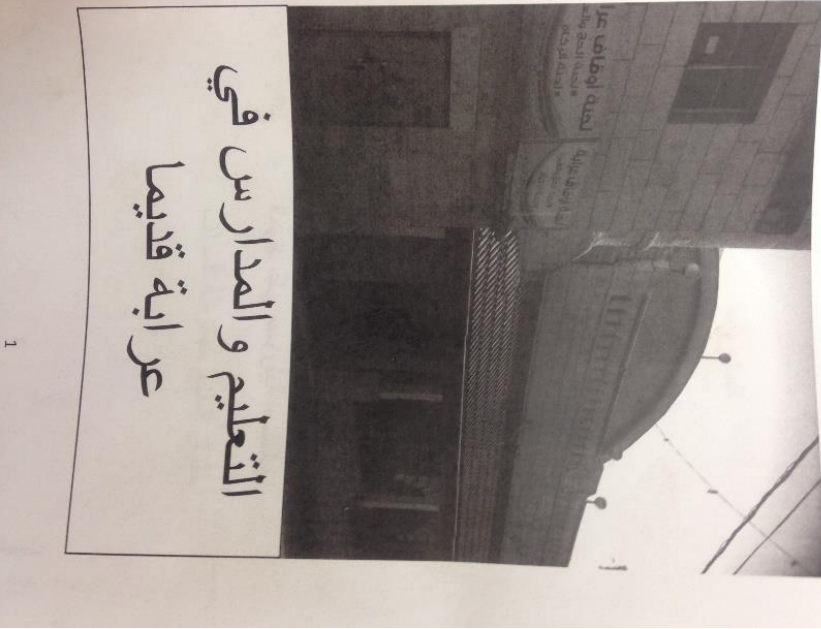 لجنة أوقاف عرا
التعليم والمدارس في
عرابة قديما
1